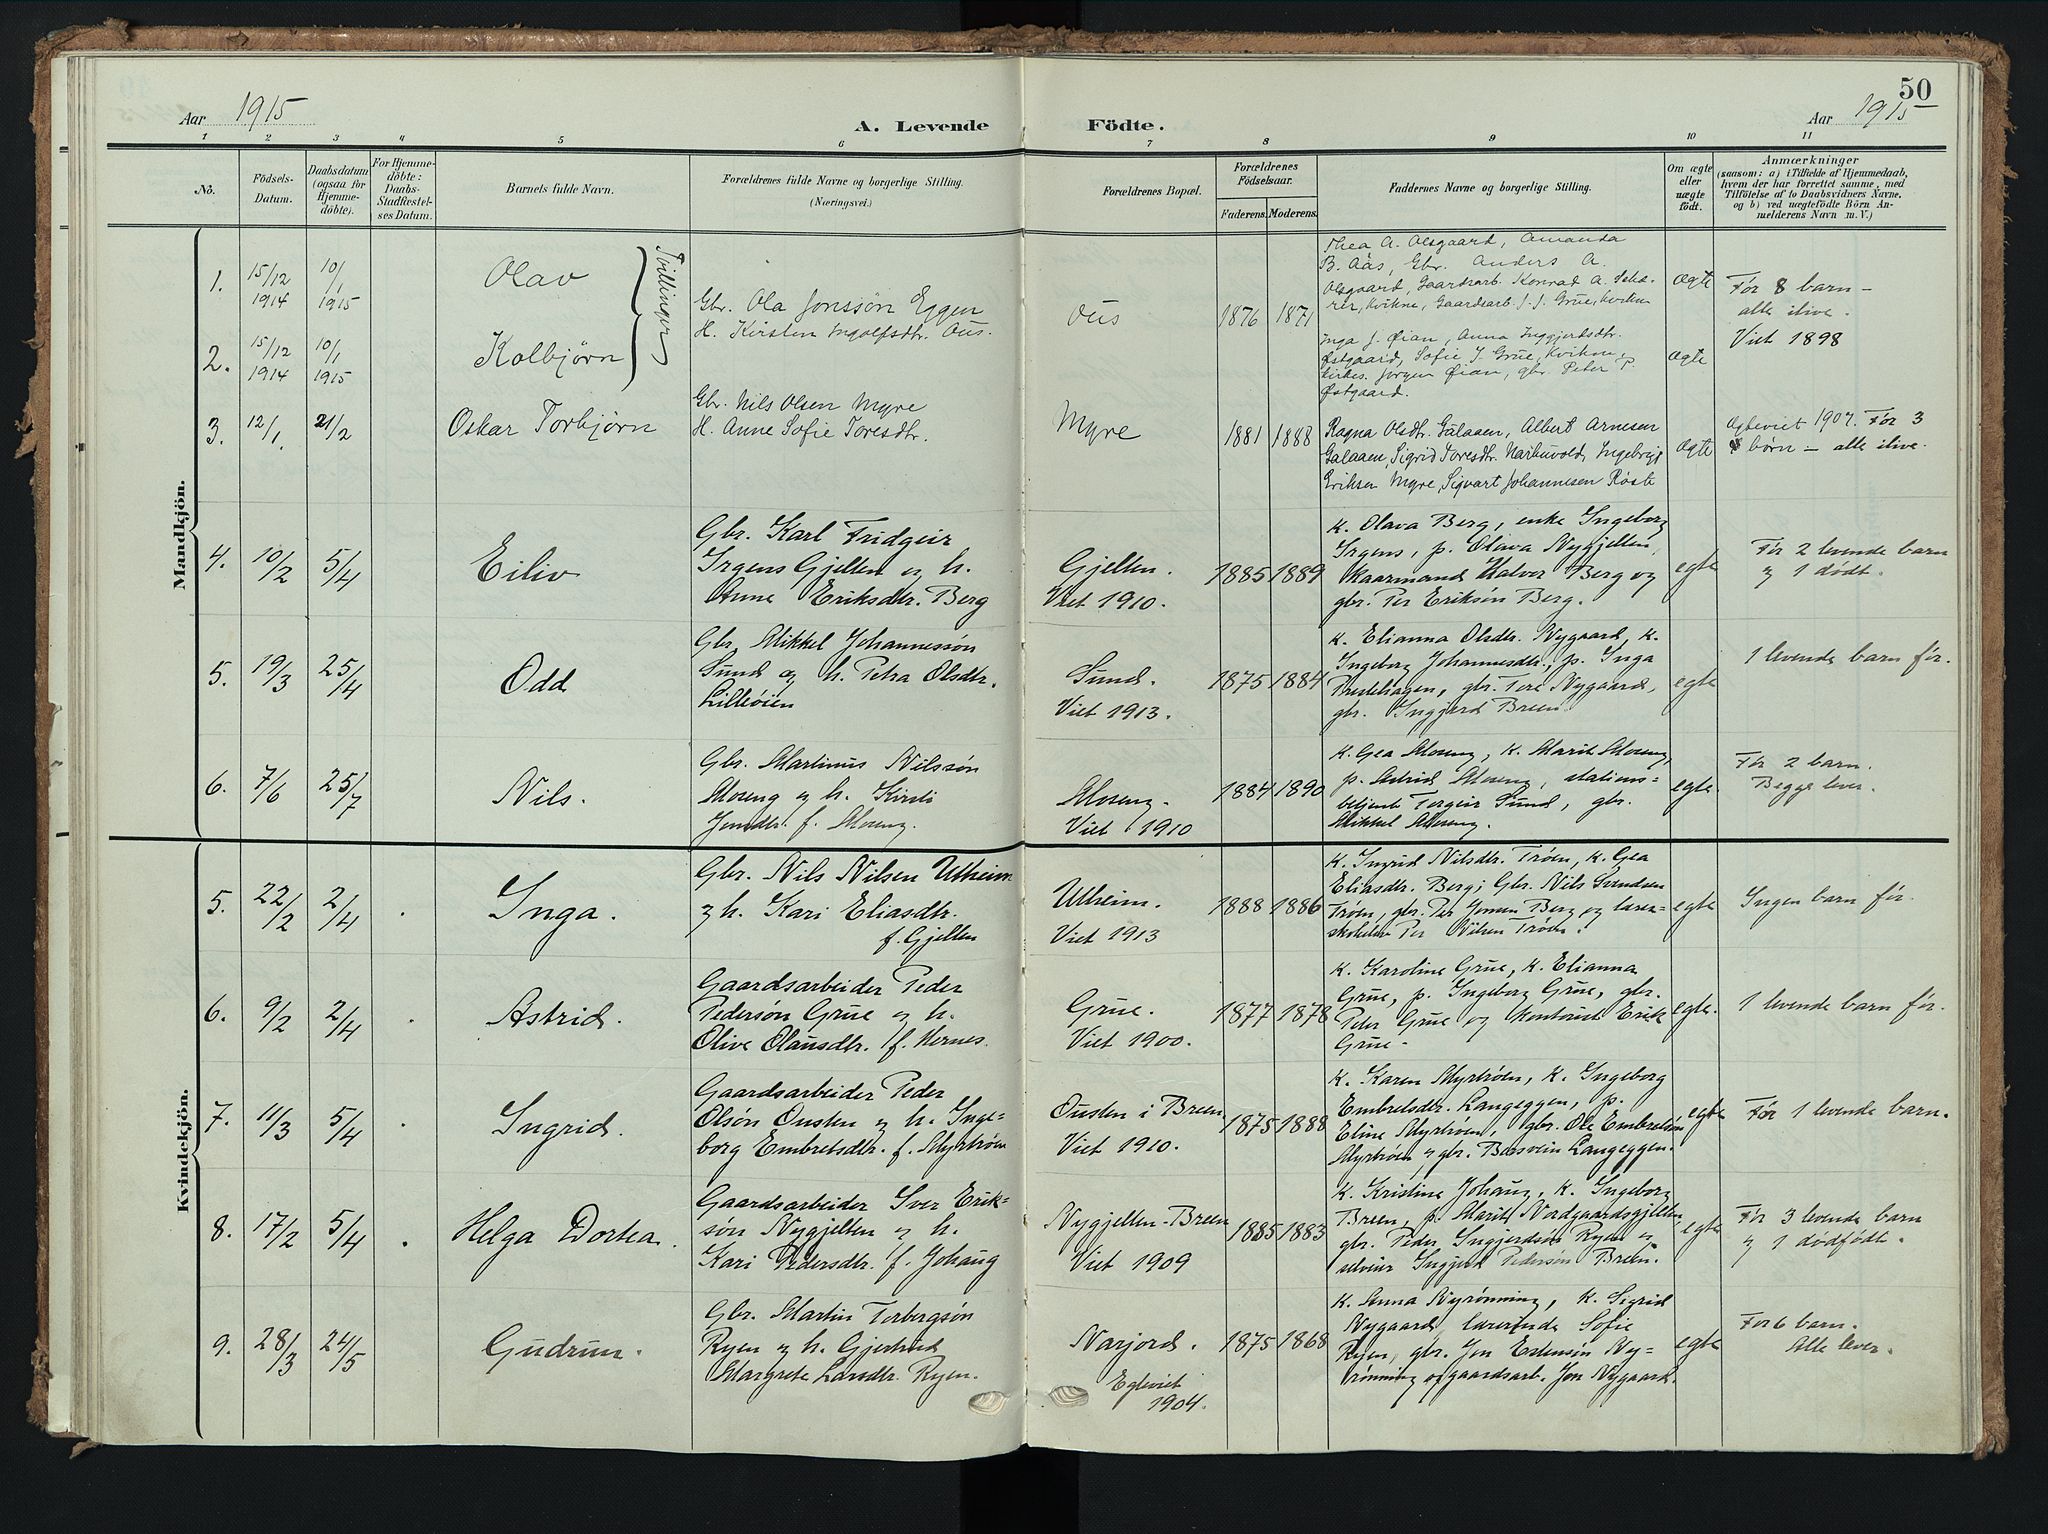 50
Aar 1915
A. Levende Födte.
Aar 1915
1 2 3 4 5 6 7 8 9 10 11
No.
Födsels-Datum.
Daabsdatum (ogsaa for Hjemme-döbte).
For Hjemme-döbte: Daabs-Stadfæstel-ses Datum.
Barnets fulde Navn.
Forældrenes fulde Navne og borgerlige Stilling.
(Næringsvei.)
Forældrenes Bopæl.
Forældrenes Födselsaar.
Faderens. Moderens.
Faddernes Navne og borgerlige Stilling.
Om ægte eller uægte födt.
Anmærkninger
(saasom: a) i Tilfælde af Hjemmedaab, hvem der har forrettet samme, med Tilföielse af to Daabsvidners Navne. og b) ved uægtefödte Börn An-melderens Navn m. V.)
Mandkjön.
1. 15/12 1914 10/1 1915 Olav
Tvillinger
Gbr. Ola Jonssön Eggen
H. Kirsten Ingolfsdtr. Ous.
Ous 1876 1871
Thea A. Olsgaard, Amanda
B. Aås, Gbr. Anders A.
Olsgaard, Gaardsarb. Konrad A.
Kvikne, Gaardsarb. J. J. Grue, Kvikne
ægte
Før 8 barn –
alle ilive.
Viet 1898
2. 15/12 1914 10/1 1915 Kolbjørn
Inga J. Øian, Anna Inggjerdsdtr.
Østgaard, Sofie J. Grue, Kvikne,
Jørgen Øian, gbr. Peter P.
Østgaard.
ægte
3. 12/1. 21/2 Oskar Torbjörn
Gbr. Nils Olsen Myre
H. Anne Sofie Toresdtr.
Myre 1881 1888
Ragna Olsdtr. Galaaen, Albert Arnesen
Galaaen, Sigrid Toresdtr. Narbuvold, Ingebrigt
Eriksen Myre, Sigvart Johannesen Röste
ægte
Ægteviet 1907. Før 3
børn – alle ilive.
4. 10/2 5/4 Eiliv
Gbr. Karl Fridgeir
Irgens Gjelten og h.
Anne Eriksdtr. Berg
Gjelten.
Viet 1910.
1885 1889
K. Olava Berg, enke Ingeborg
Irgens, p. Oliva Nygjelten,
Skaarmand Halvor Berg og
gbr. Per Eriksön Berg.
egte
Før 2 levende barn
og 1 dødt.
5. 19/3 25/4 Odd
Gbr. Mikkel Johannessön
Sund og h. Petra Olsdtr.
Lilleöien
Sund.
Viet 1913.
1875 1884
K. Elianna Olsdtr. Nygaard, K.
Ingeborg Johannesdtr., p. Inga
Prestehagen, gbr. Tore Nygaard,
gbr. Ingjerd Breen.
egte
1 levende barn før.
6. 7/6 25/7 Nils.
Gbr. Martinus Nilssön
Moseng og h. Kirsti
Jonsdtr. f. Moseng.
Moseng.
Viet 1910
1884 1890
K. Gea Moseng, K. Marit Moseng,
p. Astrid Moseng, stations=
betjent Torgeir Sund, gbr.
Mikkel Moseng.
egte.
Før 2 barn.
Begge lever.
Kvindekjön.
5. 22/2 2/4 Inga.
Gbr. Nils Nilsen Utheim
og h. Kari Eliasdtr.
f. Gjelten
Utheim.
Viet 1913
1888 1886
K. Ingrid Nilsdtr. Tröen, K. Gea
Eliasdtr. Berg; Gbr. Nils Svendsen
Tröen, gbr. Per Jonsen Berg og lærer=
skoleelev Per Nilsen Tröen.
egte
Ingen barn før.
6. 9/2 2/4 Astrid.
Gaardsarbeider Peder
Pedersön Grue og h.
Olive Olausdtr. f. Hernes.
Grue.
Viet 1900.
1877 1878
K. Karoline Grue, K. Elianna
Grue, p. Ingeborg Grue, gbr.
Peter Grue og kontorist Erik
Grue.
egte.
1 levende barn før.
7. 11/3 5/4 Ingrid.
Gaardsarbeider Peder
Olsön Ousten og h. Inge=
borg Embretsdtr. f. Myrtröen
Ousten i Breen
Viet 1910.
1875 1888
K. Karen Myrtröen, K. Ingeborg
Embretsdtr. Langeggen, p.
Eline Myrtröen, gbr. Ole Embretsön
Myrtröen og gbr. Bersvein Langeggen.
egte
Før 1 levende barn.
8. 17/2 5/4 Helga Dortea.
Gaardsarbeider Iver Erik=
sön Nygjelten og h.
Kari Pedersdtr. f. Johaug
Nygjelten-Breen
Viet 1909
1885 1883
K. Kristine Johaug, K. Ingeborg
Breen, p. Marit Nordgaardsgjelten,
gbr. Peder Ingjerdsen Ryen og
selveier Inggjerd Pedersön Breen.
egte
Før 3 levende barn
og 1 dødfødt.
9. 28/3 24/5 Gudrun.
Gbr. Martin Torbergsön
Ryen og h. Gjertrud
Margrete Larsdtr. Ryen.
Narjord.
Egteviet
1904.
1875 1868
K. Anna Nyrönning, K. Sigrid
Nygaard, lærerinde Sofie
Ryen, gbr. Jon Estensön Ny=
rönning og gaardsarb. Jon Nygaard.
egte
Før 6 barn.
Alle lever.